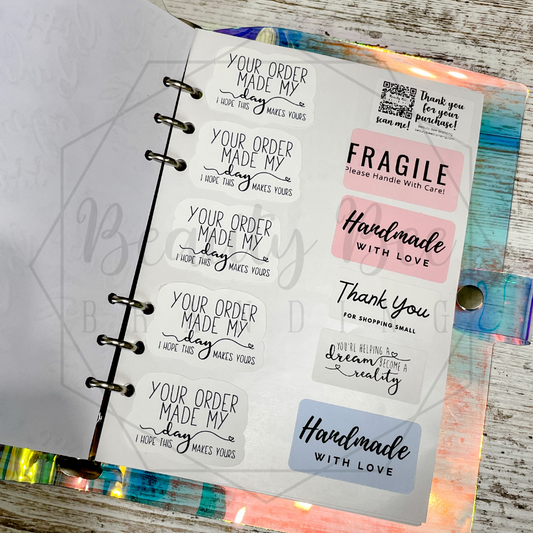 YOUR ORDER
MADE MY
day
I HOPE THIS MAKES YOURS
YOUR ORDER
MADE MY
day
I HOPE THIS MAKES YOURS
YOUR ORDER
MADE MY
day
I HOPE THIS MAKES YOURS
YOUR ORDER
MADE MY
day
I HOPE THIS MAKES YOURS
YOUR ORDER
MADE MY
day
I HOPE THIS MAKES YOURS
scan me!
Thank you
for your
purchase!
FRAGILE
Please Handle With Care!
Handmade
WITH LOVE
Thank You
FOR SHOPPING SMALL
YOU'RE HELPING A
dream BECOME A
reality
Handmade
WITH LOVE
Beauty Bee
BRANDING